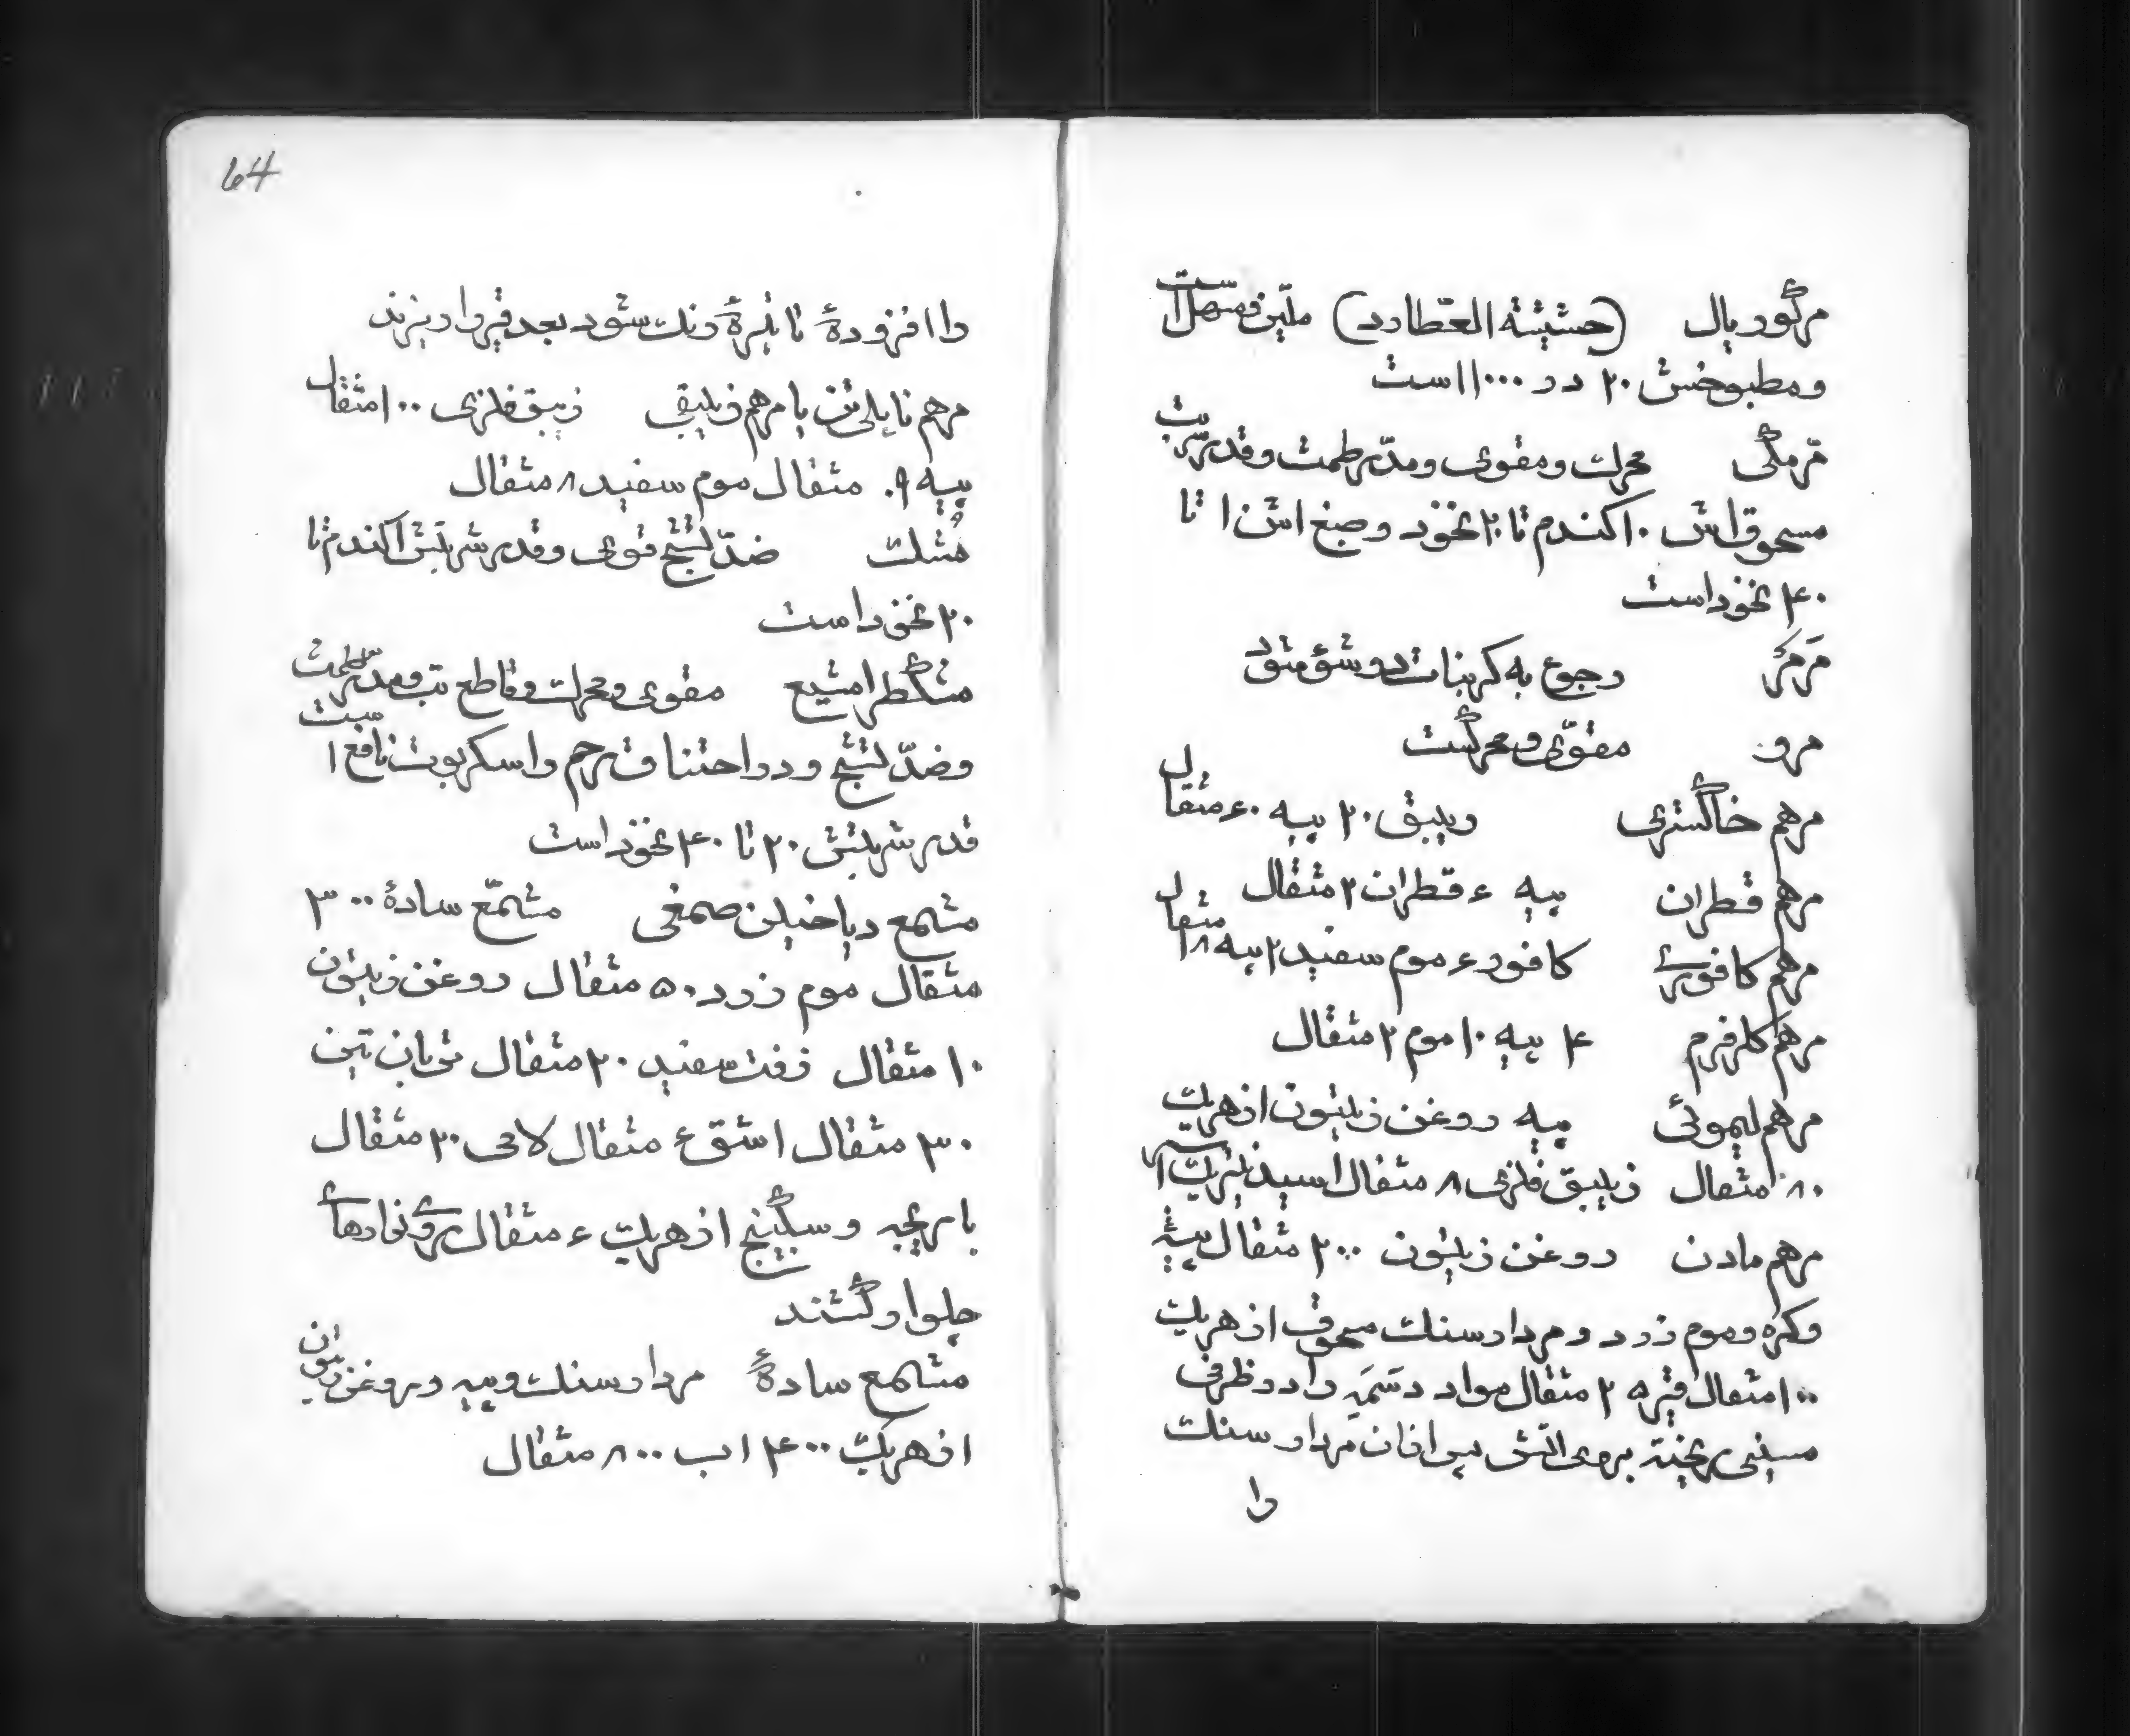 مرکوریال (حشیشة العطارد) ملیّن و مسهل است
و مطبوخش ۲۰ در ۱۰۰۰ است
مرّ مکّی محرك و مقوی و مدرّ طمث و قدر شربت
مسحوق اش ۱۰ کندم تا ۲۰ نخود و صبغ اش ۱ تا
۴۰ نخود است
مَرمَرْ رجوع به کربنات دو شو شود
مرو مقوّی و محرکست
مرهم خاکستری زیبق ۲۰ پیه ۶۰ مثقال
مرهم قطران پیه ۶ قطران ۲ مثقال
مرهم کافوری کافور ۶ موم سفید ۲ پیه ۱۸ مثقال
مرهم کلرفرم ۴ پیه ۱۰ موم ۲ مثقال
مرهم لیموئی پیه روغن زیتون از هریك
۸۰ مثقال زیبق فلزی ۸ مثقال اسید نیتریك
مرهم مادن روغن زیتون ۲۰۰ مثقال پیه
و کره و موم زرد و مردارسنك مسحوق از هریك
۱۰۰ مثقال قیر ۲۵ مثقال مواد دسَمَه را در ظرفی
مسینی ریخته بروی اتش پس از ان مردارسنك
را
64
را افزوده تا تیره رنك شود بعد قیر را بریزند
مرهم ناپلی تن یا مرهم زیبقی زیبق فلزی ۱۰۰ مثقال
پیه ۹۰ مثقال موم سفید ۸ مثقال
مُشك ضدّ تشنج قوی و قدر شربتش ۱ کندم تا
۲۰ نخود است
مشکطرامشیع مقوی و محرك و قاطع تب و مدرّ طمث
و ضدّ تشنج و در احتناق رحم و اسکربوت نافع است
قدر شربتش ۲۰ تا ۴۰ نخود است
مشمع دیاخیلن صمغی مشمّع سادهٔ ۳۰۰
مثقال موم زرد ۵۰ مثقال روغن زیتون
۱۰ مثقال زفت سفید ۲۰ مثقال تربانتین
۳۰ مثقال اشق ۶ مثقال لاحی ۲۰ مثقال
باریجه و سکبینج از هریك ۶ مثقال بروی نوارهای
چلوار کشند
مشمع سادهٔ مردارسنك و پیه و روغن زیتون
از هریك ۴۰۰ اب ۸۰۰ مثقال